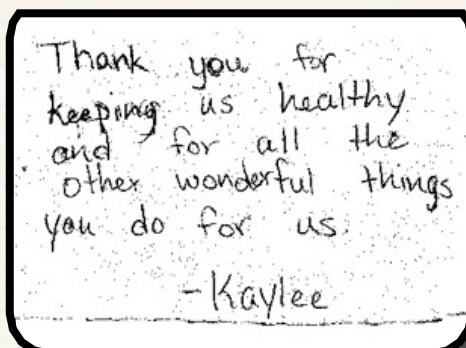 Thank you for
keeping us healthy
and for all the
other wonderful things
you do for us.
-Kaylee